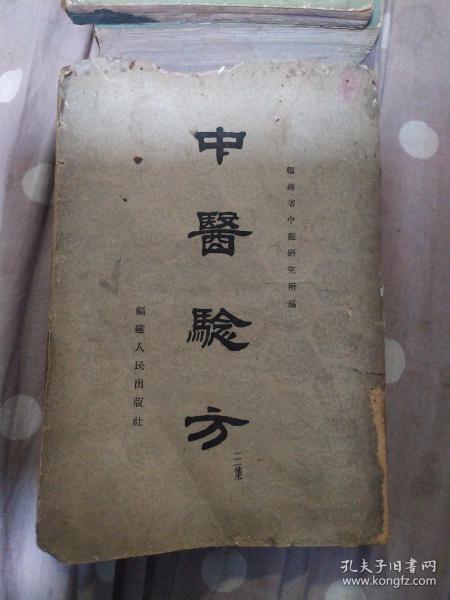 福建省中医研究所編
中醫騐方
集
福建人民出版社
孔夫子旧书网
www.kongfz.com